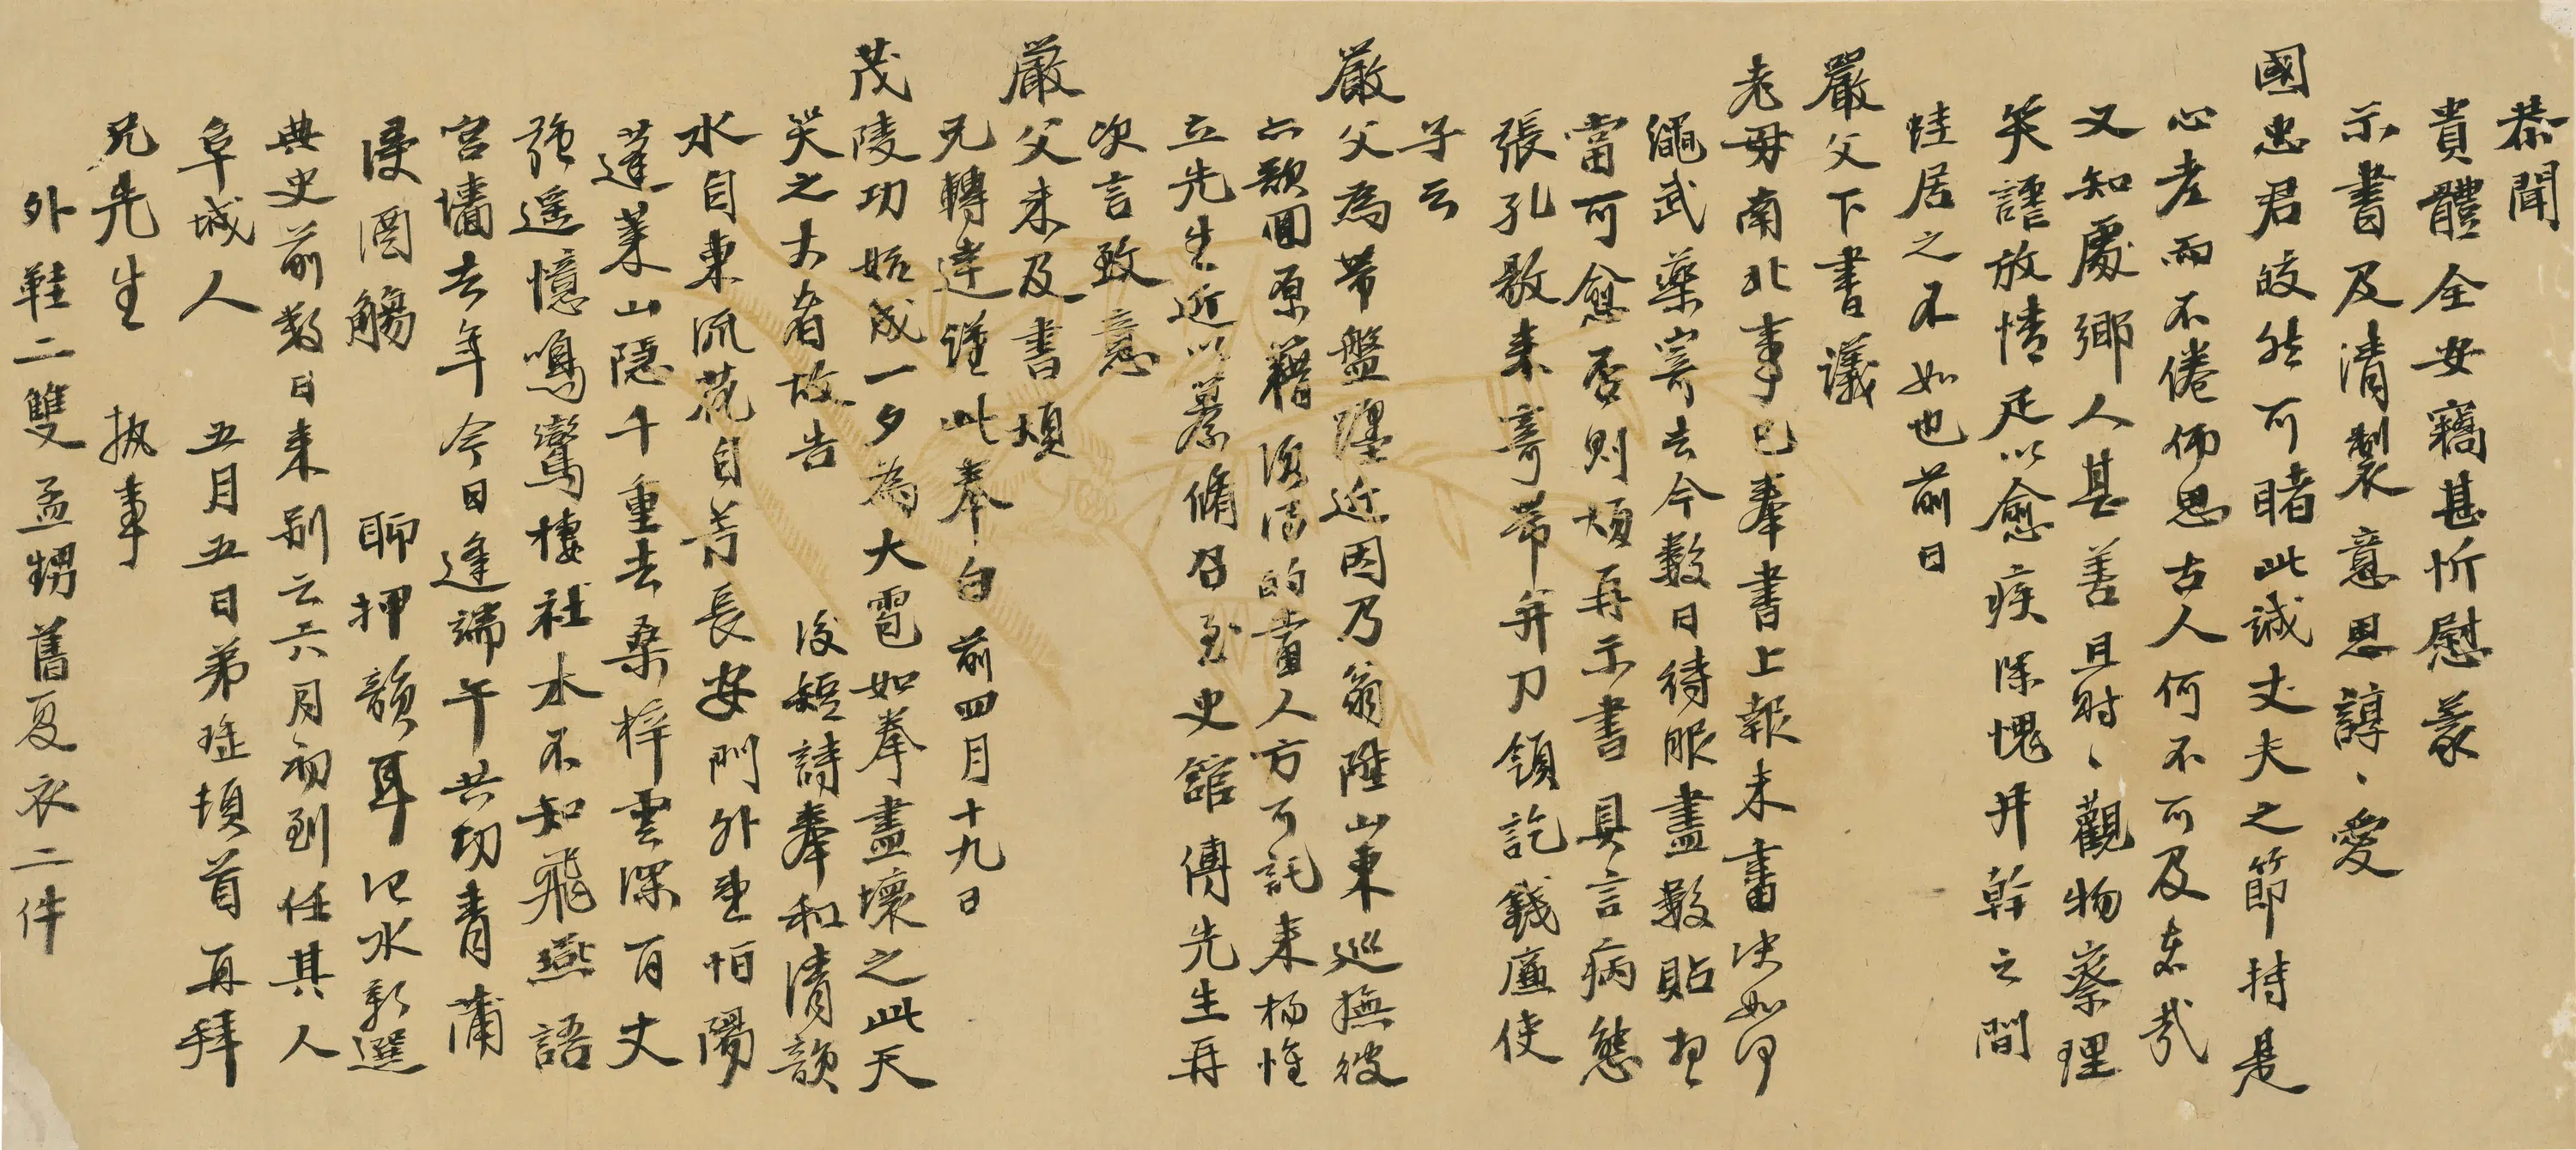 恭聞
貴體全安竊甚忻慰蒙
示書及清製意思諄、愛
國忠君皎然可睹此誠丈夫之節持是
心老而不倦師思古人何不可及東哉
又知處鄉人甚善且時、觀物察理
笑謔放情足以愈疾深愧井幹之間
蛙居之不如也前日
嚴父下書議
老母南北事已奉書上報未審決如何
繩武藥寄去今數日待服盡數貼想
當可愈否則煩再示書具言病態
張孔敭來寄帶弁刀領訖錢廉使
子云
嚴父為帶盤纏近因乃翁陞山東巡撫彼
亦欲回原籍須得的當人方可託來楊惟
立先生近以纂脩召至史館傅先生再
次言致意
嚴父未及書煩
兄轉達謹此奉白 前四月十九日
茂陵功始成一夕為大雹如拳盡壞之此天
哭之大者故告 後短詩奉和清韻
水自東流花自芳長安門外車怕陽
蓬萊山隱千重去桑梓雲深百丈
強遥憶鳴鸞棲社木不知飛燕語
宮墻去年今日逢端午共切青蒲
侵酒觴 聊押韻耳 汜水新選
典史前數日來別云六月初到任其人
阜城人 五月五日弟珤頓首再拜
兄先生 执事
外鞋二雙孟甥舊夏衣二件